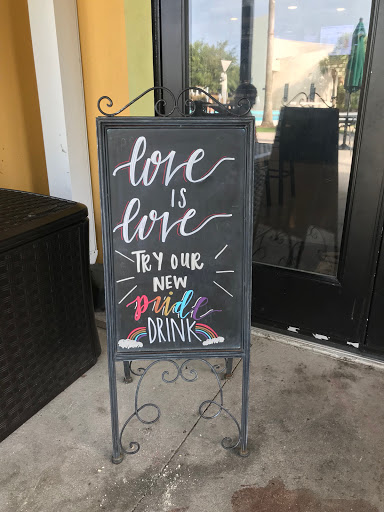 love
IS
love
TRY OUR
NEW
pride
DRINK